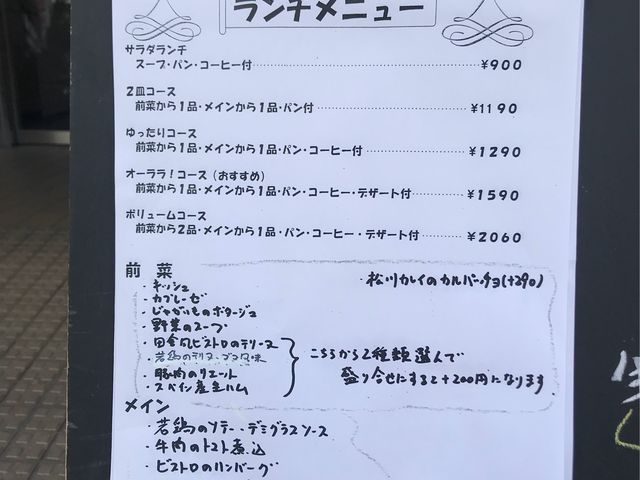 ランチメニュー
サラダランチ
スープ・パン・コーヒー付 ¥900
2皿コース
前菜から1品・メインから1品・パン付 ¥1190
ゆったりコース
前菜から1品・メインから1品・パン・コーヒー付 ¥1290
オーララ！コース（おすすめ）
前菜から1品・メインから1品・パン・コーヒー・デザート付 ¥1590
ボリュームコース
前菜から2品・メインから1品・パン・コーヒー・デザート付 ¥2060
前菜
・松川カレイのカルパッチョ(+290)
・キッシュ
・カプレーゼ
・じゃがいものポタージュ
・野菜のスープ
・田舎風ビストロのテリーヌ
・豚肉のリエット
・スペイン産生ハム
こちらから2種類選んで
盛り合せにすると+200円になります
メイン
・若鶏のソテー・デミグラスソース
・牛肉のトマト煮込
・ビストロのハンバーグ